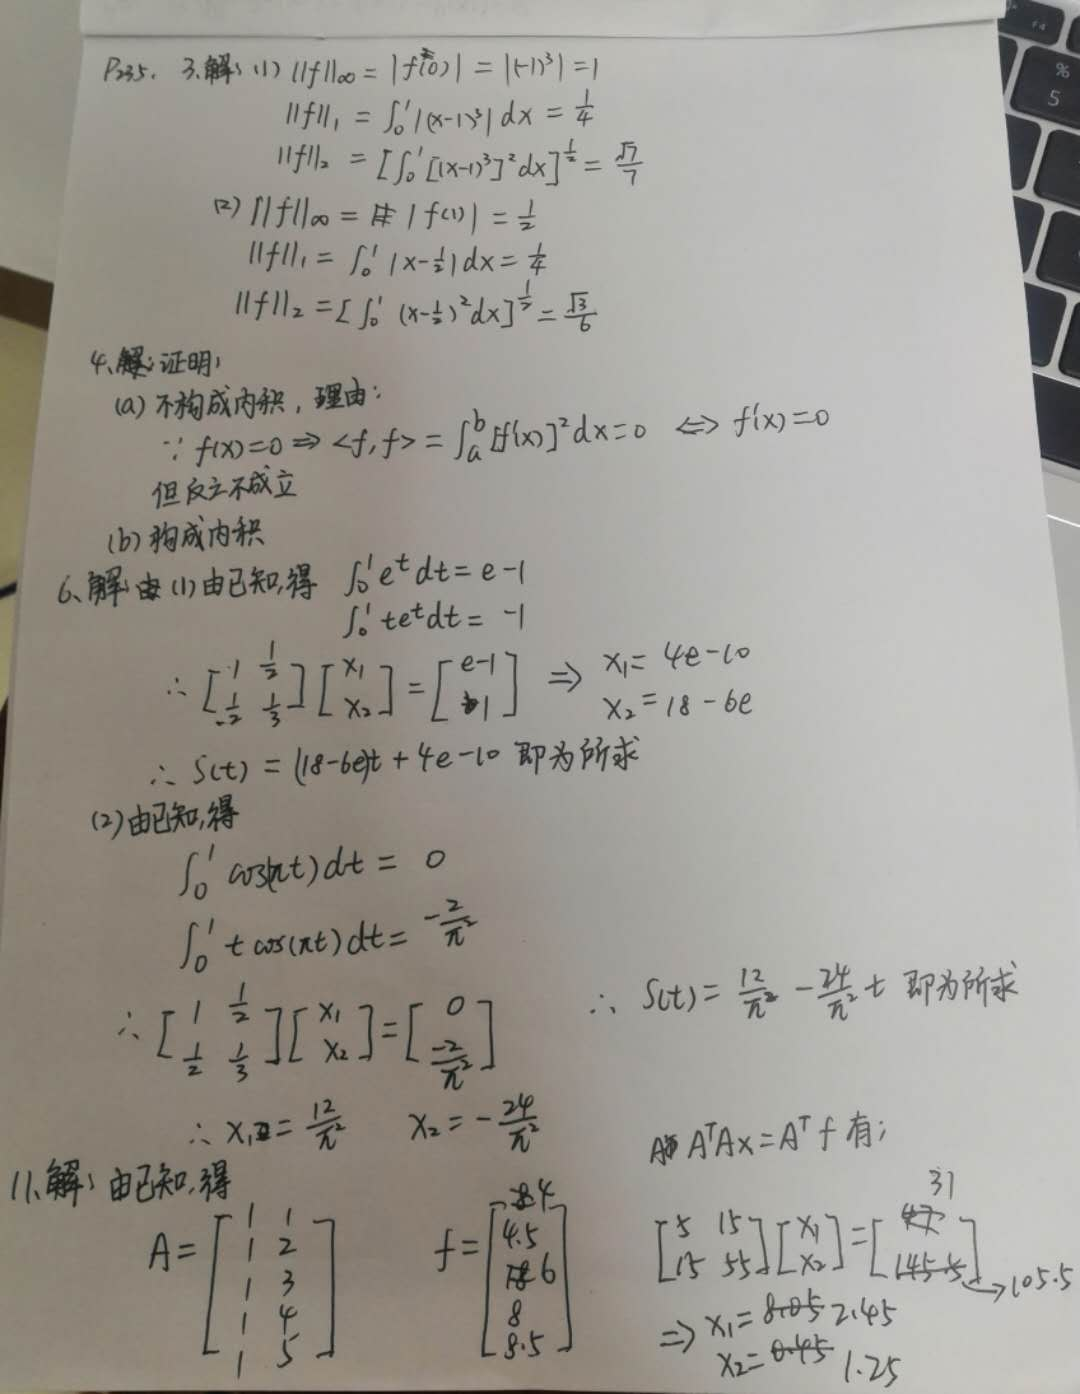 P235. 3.解: (1) ||f||∞ = |f(0)| = |(-1)³| = 1
||f||₁ = ∫₀¹ |(x-1)³| dx = 1/4
||f||₂ = [∫₀¹ [(x-1)³]² dx]^(1/2) = √7/7
(2) ||f||∞ = |f(1)| = 1/2
||f||₁ = ∫₀¹ |x-1/2| dx = 1/4
||f||₂ = [∫₀¹ (x-1/2)² dx]^(1/2) = √3/6
4、证明:
(a) 不构成内积, 理由:
∵ f(x)=0 ⇒ <f,f> = ∫ₐᵇ [f'(x)]² dx = 0 ⇔ f'(x)=0
但反之不成立
(b) 构成内积
6、解: (1) 由已知,得 ∫₀¹ eᵗ dt = e-1
∫₀¹ teᵗ dt = -1
∴ [1 1/2; 1/2 1/3] [x₁; x₂] = [e-1; 1] ⇒ x₁ = 4e-10
x₂ = 18-6e
∴ S(t) = (18-6e)t + 4e-10 即为所求
(2) 由已知,得
∫₀¹ cos(πt) dt = 0
∫₀¹ t cos(πt) dt = -2/π²
∴ [1 1/2; 1/2 1/3] [x₁; x₂] = [0; -2/π²]
∴ S(t) = 12/π² - 24/π² t 即为所求
∴ x₁ = 12/π² x₂ = -24/π²
11、解: 由已知,得
A = [1 1; 1 2; 1 3; 1 4; 1 5] f = [4; 4.5; 6; 8; 8.5]
AᵀAx = Aᵀf 有:
[5 15; 15 55] [x₁; x₂] = [31; 105.5]
⇒ x₁ = 2.45
x₂ = 1.25